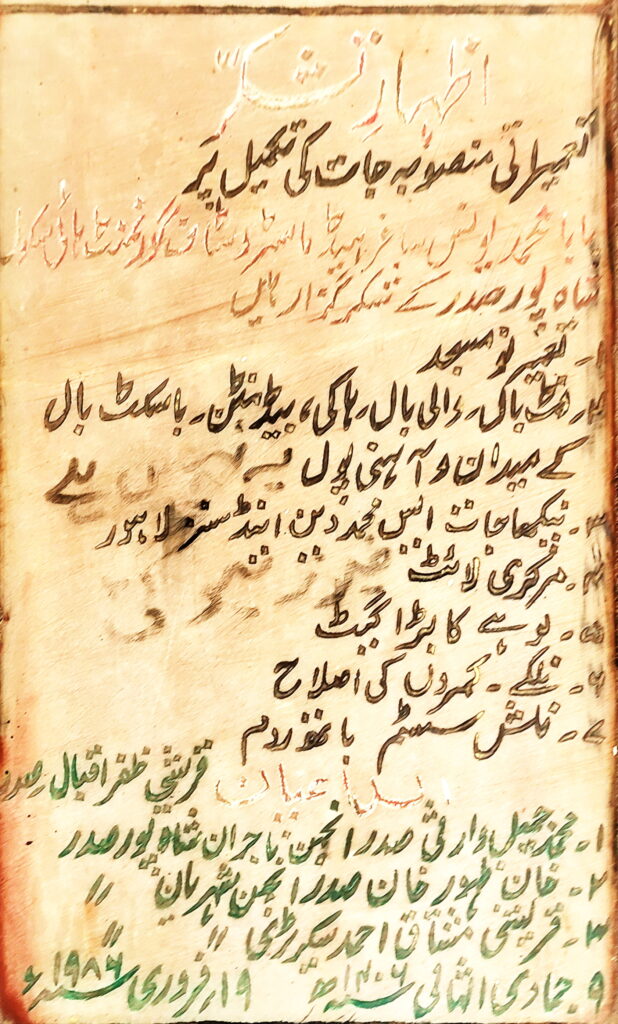 اظہارِ تشکر
تعمیراتی منصوبہ جات کی تکمیل پر
بابا محمد یونس ساغر ہیڈ ماسٹر و سٹاف گورنمنٹ ہائی سکول
شاہ پور صدر کے شکر گزار ہیں
۱۔ تعمیر نو مسجد
۲۔ فٹ بال۔ والی بال۔ ہاکی، بیڈمنٹن۔ باسکٹ بال
کے میدان و آہنی پول
۳۔ پنکھا جات ایس محمد دین اینڈ سنز لاہور
۴۔ مرکری لائٹ
۵۔ لوہے کا بڑا گیٹ
۶۔ نلکے۔ کمروں کی اصلاح
۷۔ فلش سسٹم باتھ روم
قریشی ظفر اقبال صدر
۱۔ محمد جمیل وارثی صدر انجمن تاجران شاہ پور صدر
۲۔ خان ظہور خان صدر انجمن شہریان 〃
۳۔ قریشی مشتاق احمد سیکرٹری 〃 〃
۹ جمادی الثانی ۱۴۰۶ھ ۱۹ فروری ۱۹۸۶ء